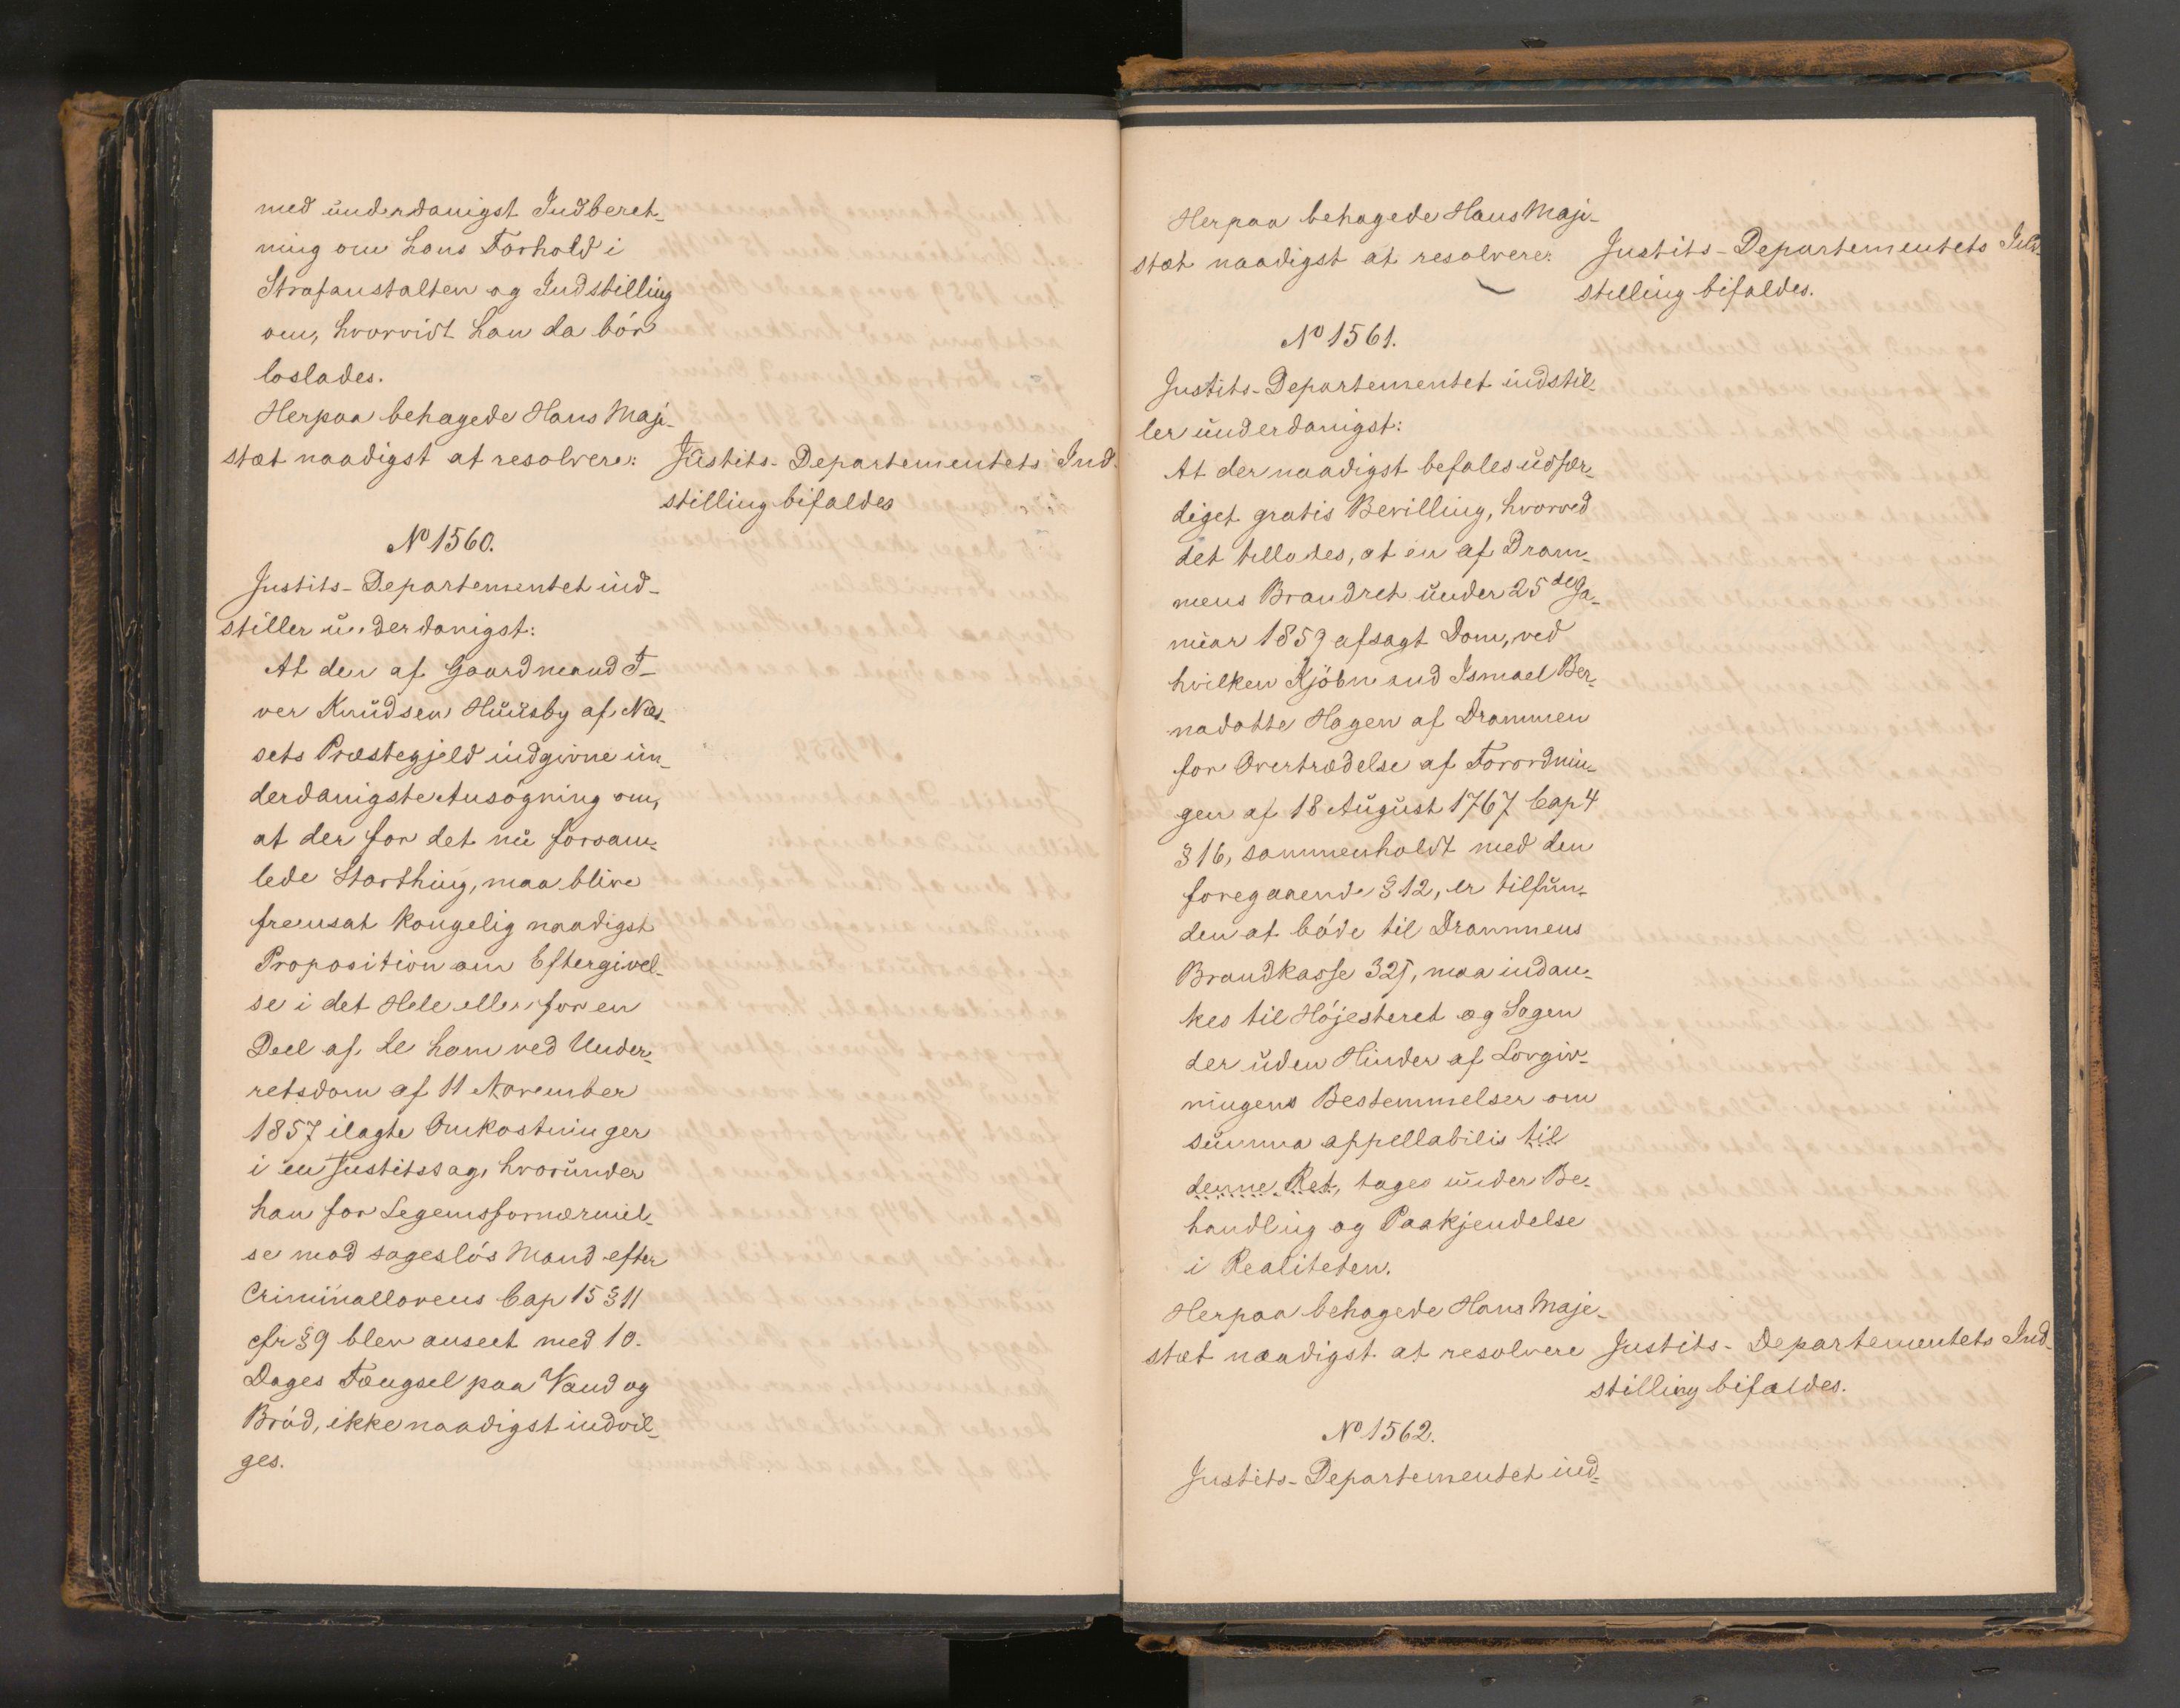 med underdanigst Indberet-
ning om hans Forhold i
Strafanstalten og Indstilling
om, hvorvidt han da bör
loslades.
Herpaa behagede Hans Maje-
stæt naadigst at resolvere: Justits-Departementets Ind-
stilling bifaldes
No 1560.
Justits-Departementet ind-
stiller underdanigst:
At den af Gaardmand I-
ver Knudsen Huusby af Næs-
sets Præstegjeld indgivne un-
derdanigste Ansögning om,
at der for det nu forsam-
lede Storthing, maa blive
fremsat kongelig naadigst
Proposition om Eftergivel-
se i det Hele eller for en
Deel af de ham ved Under-
retsdom af 11 November
1857 ilagte Omkostninger
i en Justitssag, hvorunder
han for Legemsfornærmel-
se mod sageslös Mand efter
Criminallovens Cap 15 § 11
cfr § 9 blev anseet med 10.
Dages Fængsel paa Vand og
Bröd, ikke naadigst indvil-
ges.
Herpaa behagede Hans Maje-
stæt naadigst at resolvere: Justits-Departementets Ind-
stilling bifaldes.
No 1561.
Justits-Departementet indstil-
ler underdanigst:
At der naadigst befales udfær-
diget gratis Bevilling, hvorved
det tillades, at en af Dram-
mens Brandret under 25de Ja-
nuar 1859 afsagt Dom, ved
hvilken Kjöbmand Ismael Ber-
nadotte Hagen af Drammen
for Overtrædelse af Forordnin-
gen af 18 August 1767 Cap 4
§ 16, sammenholdt med den
foregaaende § 12, er tilfun-
den at böde til Drammens
Brandkasse 32, maa indan-
kes til Höjesteret og Sagen
der uden Hinder af Lovgiv-
ningens Bestemmelser om
summa appellabilis til
denne Ret, tages under Be-
handling og Paakjendelse
i Realiteten.
Herpaa behagede Hans Maje-
stæt naadigst at resolvere Justits-Departementets Ind-
stilling bifaldes.
No 1562.
Justits-Departementet ind-